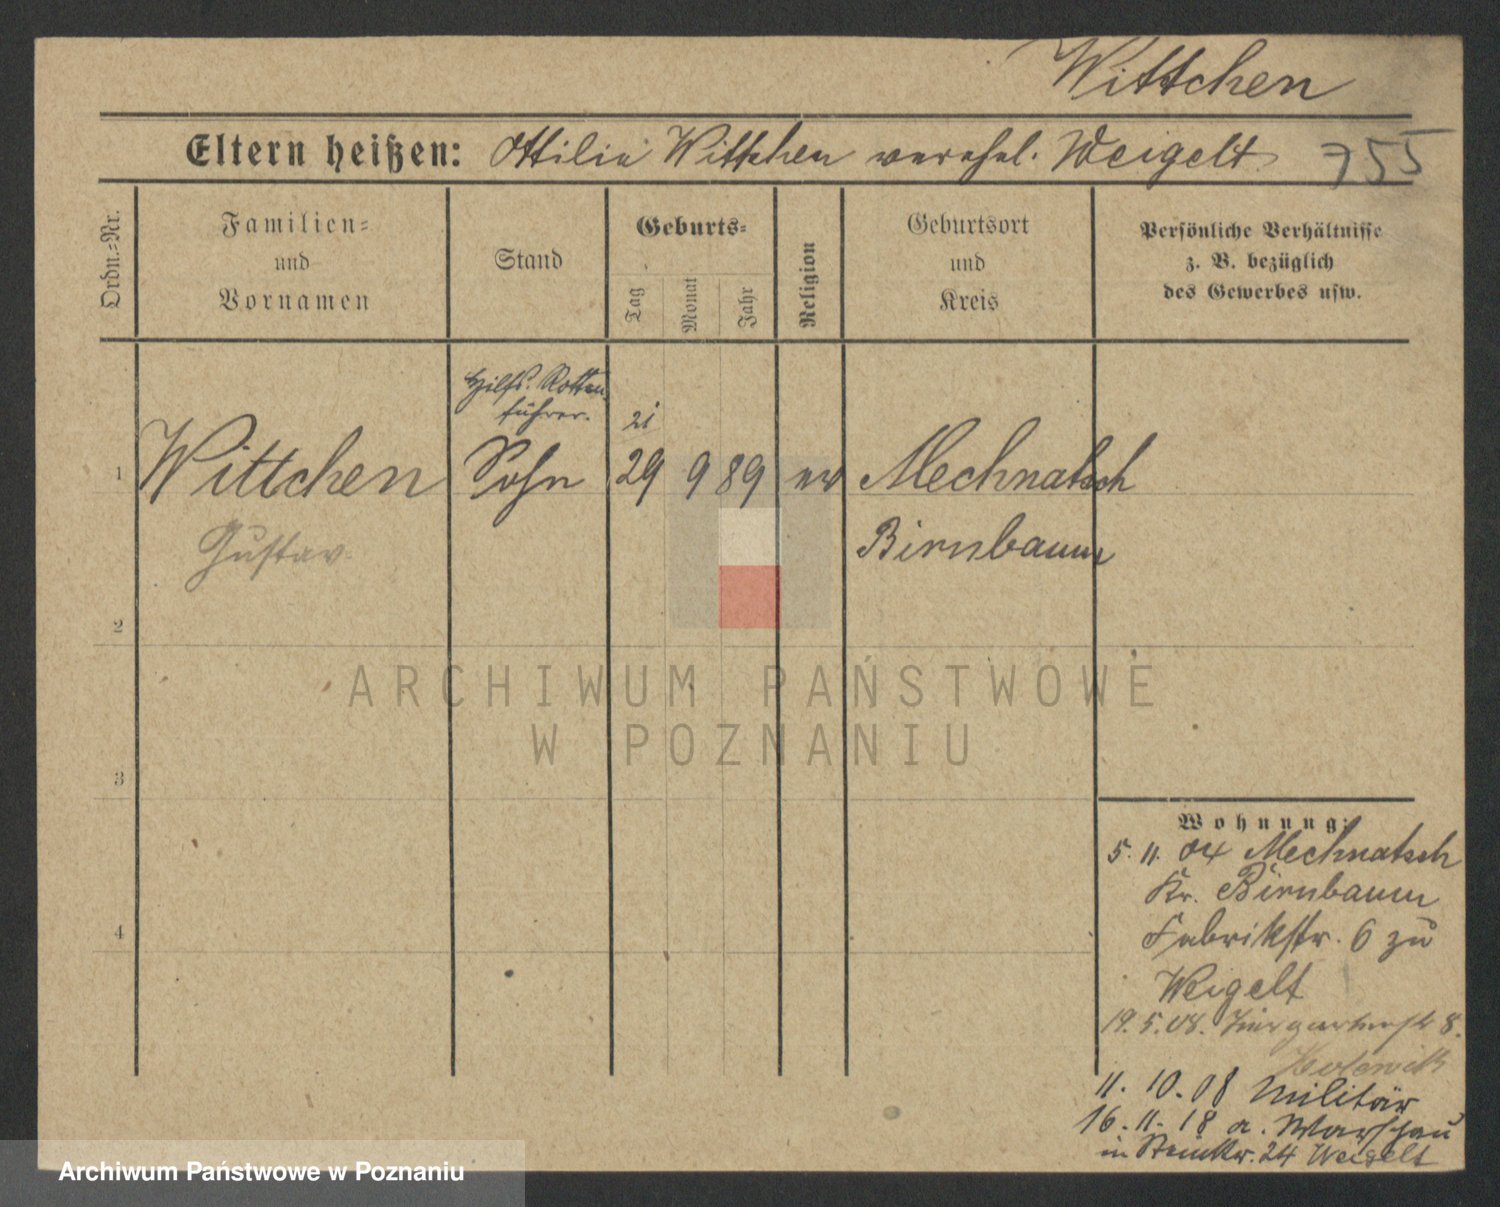 Wittchen
Eltern heißen: Ottilie Wittchen verehel. Weigelt 755
Ordn.=Nr.
Familien=
und
Vornamen
Stand
Geburts=
Tag
Monat
Jahr
Religion
Geburtsort
und
Kreis
Persönliche Verhältnisse
z. B. bezüglich
des Gewerbes usw.
Hilfs. Rotten
führer.
21
1 Wittchen Sohn 29 9 89 ev Mechnatsch
Gustav Birnbaum
2
3
4
Wohnung:
5. 11. 04 Mechnatsch
Kr. Birnbaum
Fabrikstr. 6 zu
Weigelt
19. 5. 08. 8.
11. 10. 08 Militär
16. 11. 18 a. Warschau
in 24 Weigelt
ARCHIWUM PAŃSTWOWE
W POZNANIU
Archiwum Państwowe w Poznaniu